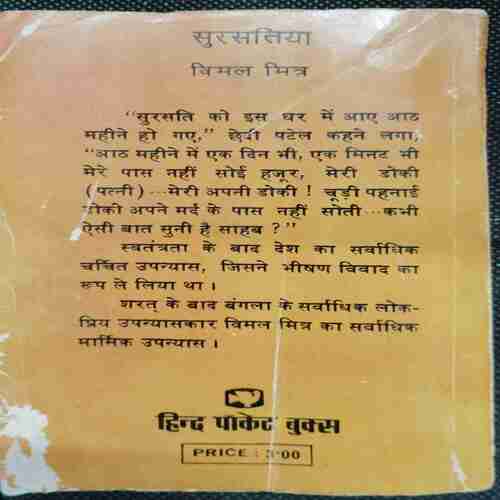 सुरसतिया
विमल मित्र
"सुरसति को इस घर में आए आठ
महीने हो गए," छेदी पटेल कहने लगा,
"आठ महीने में एक दिन भी, एक मिनट भी
मेरे पास नहीं सोई हजूर, मेरी डोकी
(पत्नी)...मेरी अपनी डोकी ! चूड़ी पहनाई
डोकी अपने मर्द के पास नहीं सोती...कभी
ऐसी बात सुनी है साहब ?"
स्वतंत्रता के बाद देश का सर्वाधिक
चर्चित उपन्यास, जिसने भीषण विवाद का
रूप ले लिया था ।
शरत् के बाद बंगला के सर्वाधिक लोक-
प्रिय उपन्यासकार विमल मित्र का सर्वाधिक
मार्मिक उपन्यास ।
हिन्द पॉकेट बुक्स
PRICE : 3·00